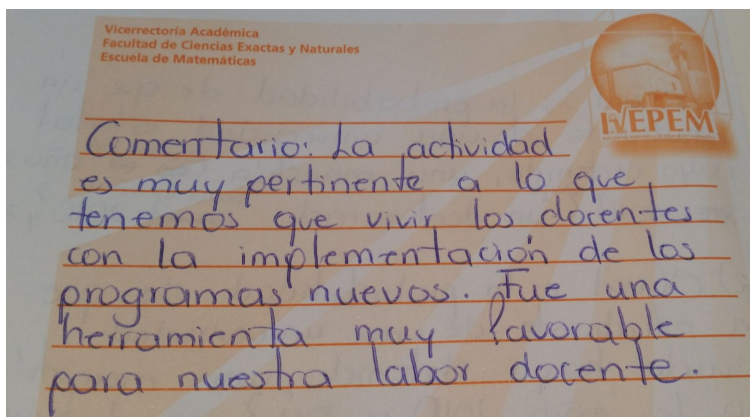 Vicerrectoría Académica
Facultad de Ciencias Exactas y Naturales
Escuela de Matemáticas
IVEPEM
Comentario: La actividad
es muy pertinente a lo que
tenemos que vivir los docentes
con la implementación de los
programas nuevos. Fue una
herramienta muy favorable
para nuestra labor docente.